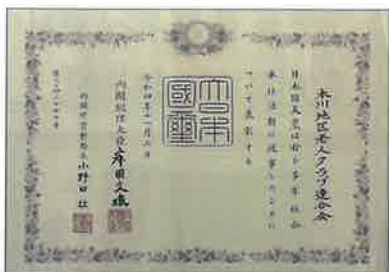 本川地区老人クラブ連合会
日本国天皇は多年社会
奉仕活動に従事したことに
ついて表彰する
大日本國璽
令和四年十一月三日
内閣総理大臣 岸田文雄
内閣府賞勲局長 小野田 壮